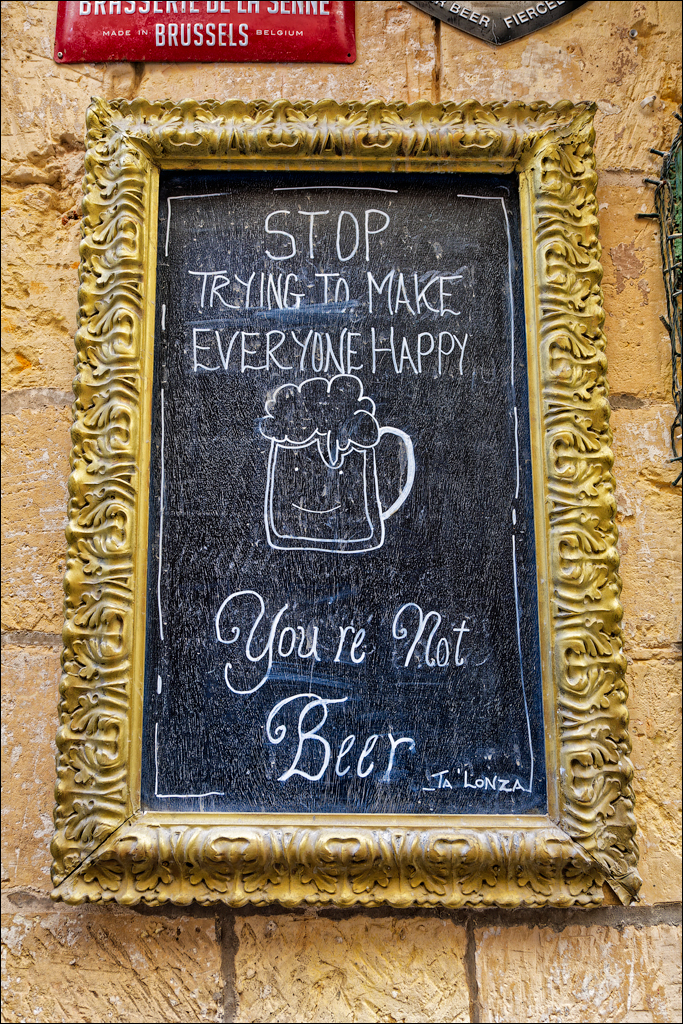 BRASSERIE DE LA SENNE
MADE IN BRUSSELS BELGIUM
BEER FIERCEL
STOP
TRYING TO MAKE
EVERYONE HAPPY
You're Not
Beer
TA'LONZA